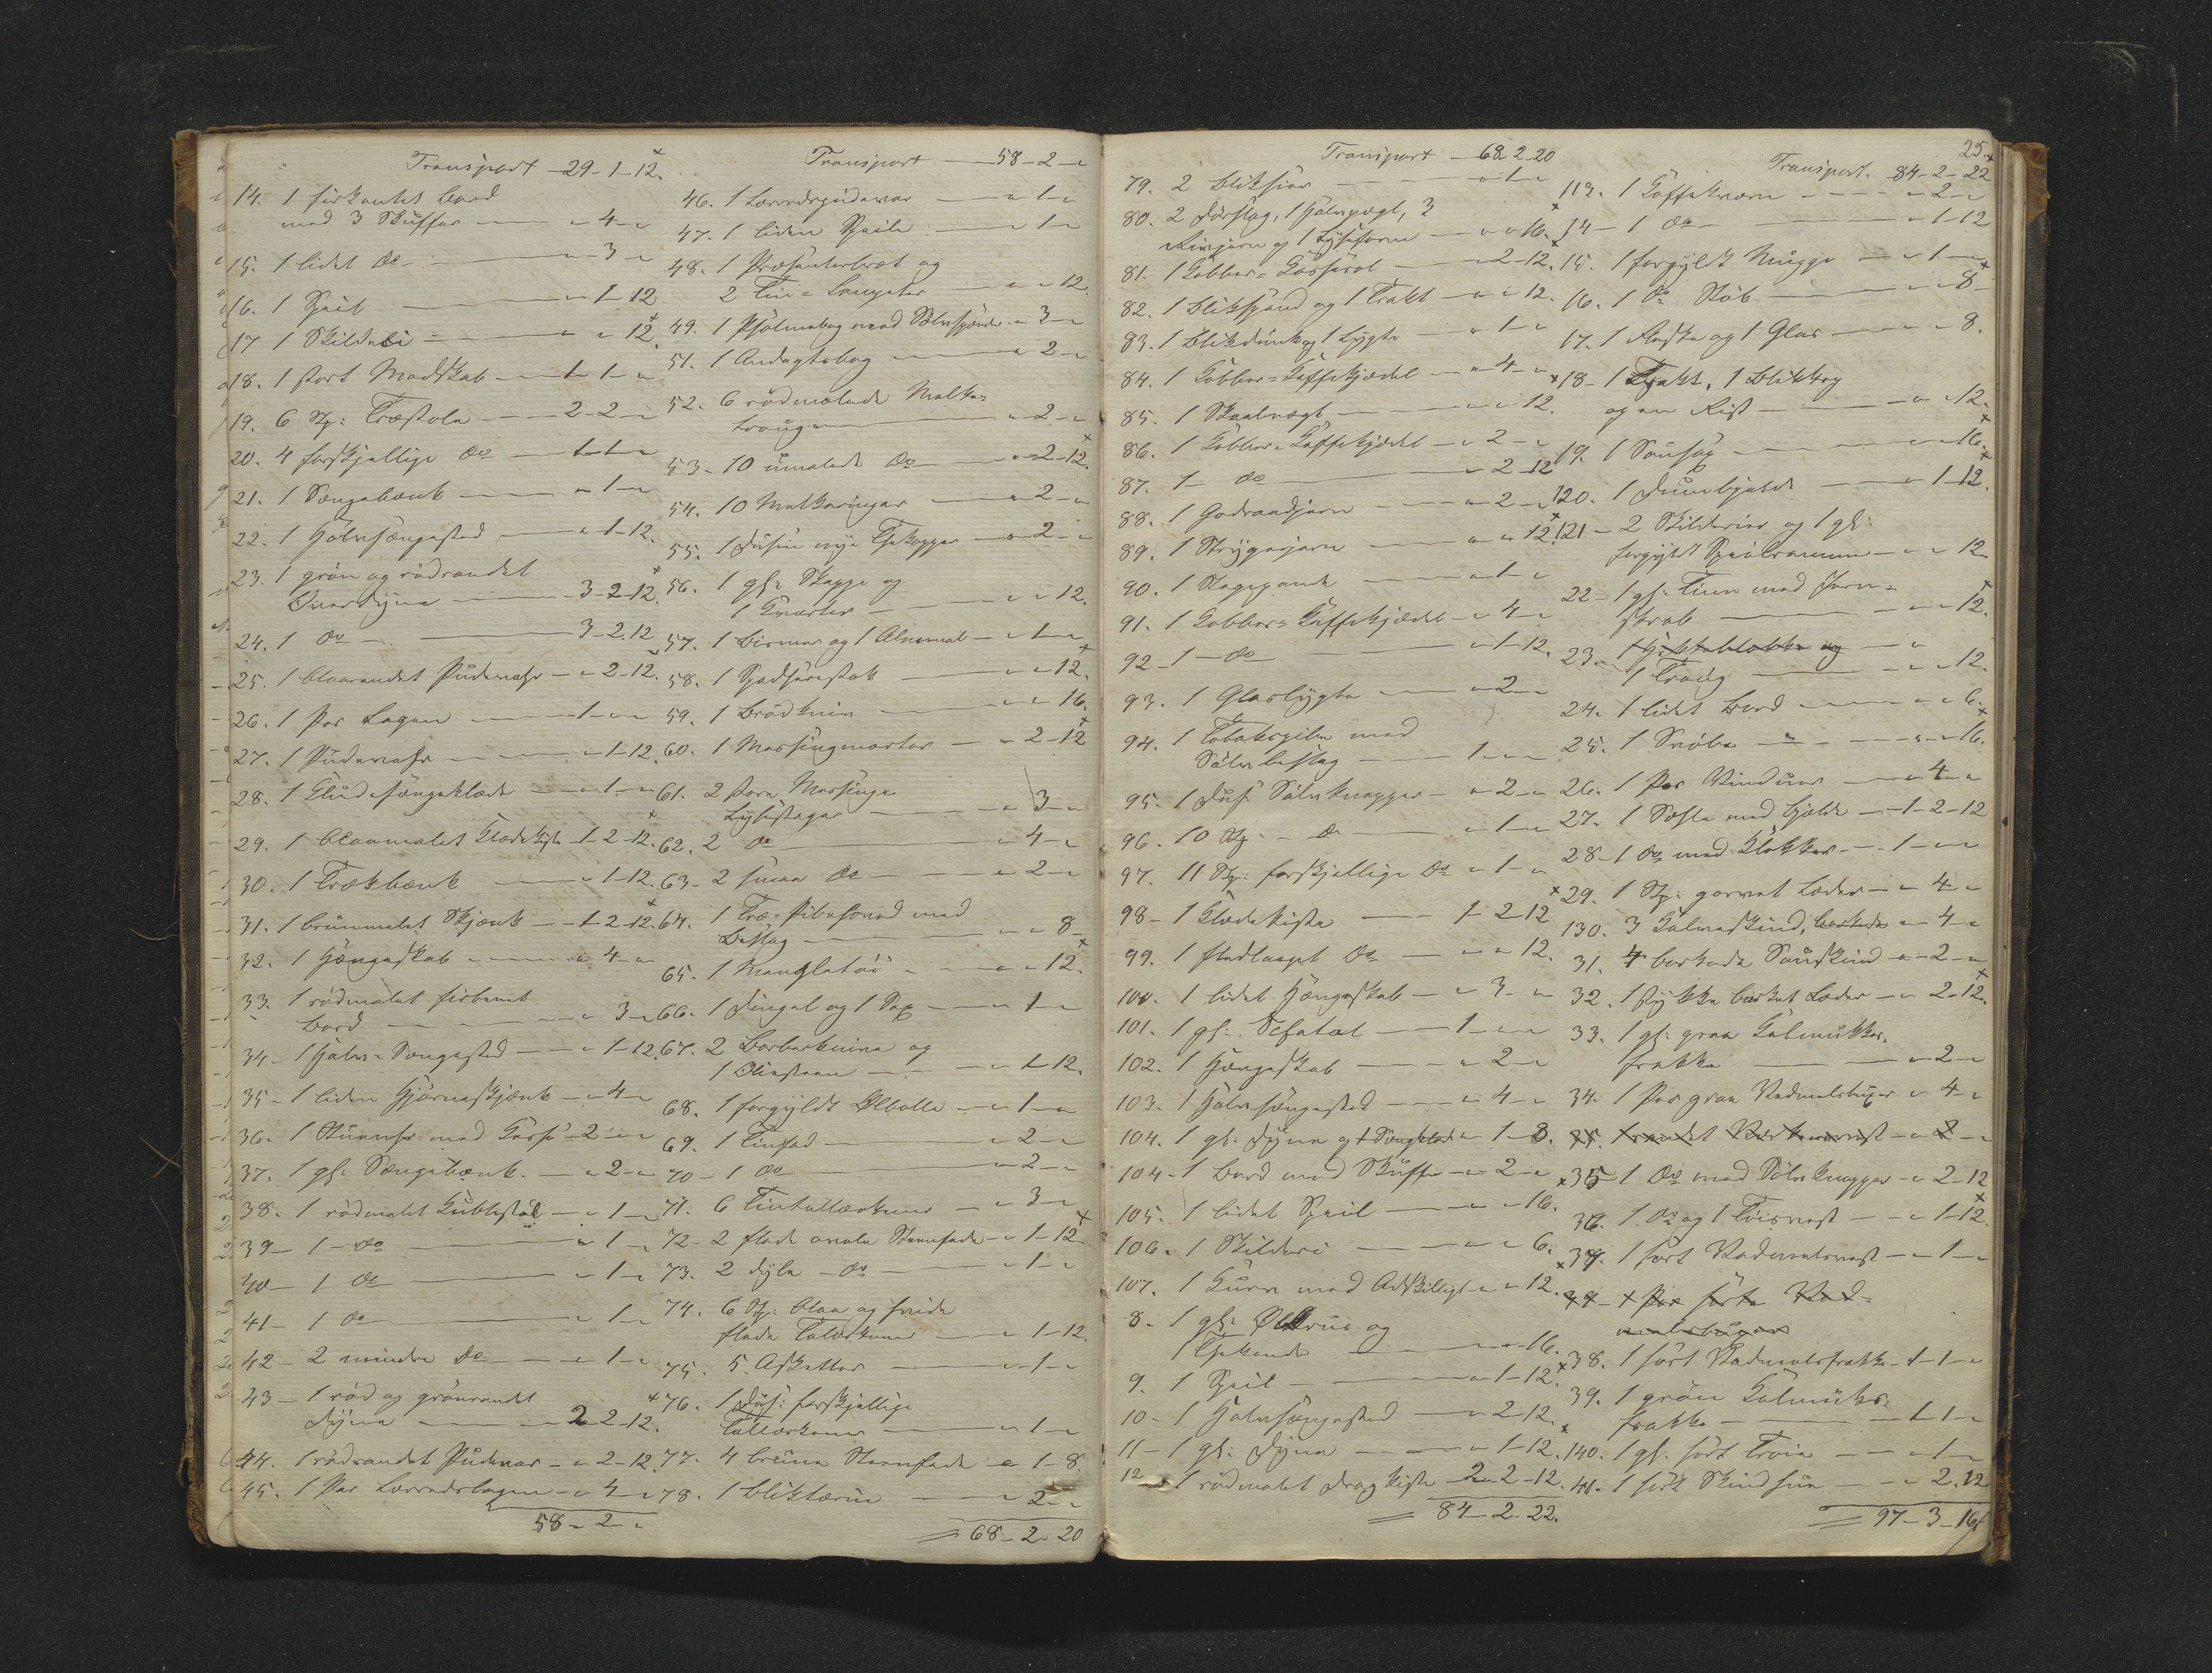 Transport - 29-1-12.
14. 1 firkantet Bord
med 3 Skuffer - " 4 - "
15. 1 lidet Do - " 3 - "
16. 1 Speil - " 1-12
17 1 Skilderi - " " 12.
18. 1 stort Madskab - 1-1- "
19. 6 Stk: Træstole - 2-2- "
20. 4 forskjellige Do - 1-1- "
21. 1 Sengebænk - " 1 - "
22. 1 Halvsængested - " 1-12.
23. 1 grøn og rødrandet
Overdyne - 3-2-12.
24. 1 Do - 3-2.12
25. 1 blaarandet Pudevahr - " 2-12.
26. 1 Par Lagen - 1 - " "
27. 1 Pudevahr - " 1-12.
28. 1 Kludesængeklæde - " 1 - "
29. 1 blaamalet Klædekiste 1-2-12.
30. 1 Trækbænk - " 1-12.
31. 1 brunmalet Skjænk - 1-2-12.
32. 1 Hængeskab - " 4 - "
33. 1 rødmalet firkantet
Bord - " 3 - "
34 - 1 Halv-Sængested - " 1-12.
35 - 1 liden Hjørneskjænk - " 4 - "
36. 1 Stueuhr med Casse - 2 - " "
37. 1 gl: Sængebænk. - " 2 - "
38. 1 rødmalet Kubbestol - " 1 - "
39 - 1 - Do - " 1 - "
40 - 1 Do - " 1 - "
41 - 1 Do - " 1 - "
42 - 2 mindre Do - " 1 - "
43 - 1 rød og grønrandet
Dyne - 2-2-12.
44. 1 rødrandet Pudevar - " 2-12.
45. 1 Par Lærredslagen - " 4 - "
58 - 2 - "
Transport - 58-2 - "
46. 1 Lærredspudevar - " 1 - "
47. 1 liden Speile - " 1 - "
48. 1 Præsenterbræt og
2 Tin= - " " 12.
49. 1 Psalmebog med Sølvspænde - " 3 - "
51. 1 Andagtsbog - " 2 - "
52. 6 rødmalede Melke=
trouge - " 2 - "
53 - 10 umalede Do - " 2-12.
54. 10 Melkeringer - " 2 - "
55. 1 Dusin nye Thekopper - " 2 - "
56. 1 gl: Skjeppe og
1 Kvarter - " " 12.
57. 1 Bismer og 1 Alnemaal - " 1 - "
58. 1 Spadserestok - " " 12.
59. 1 Brødkniv - " " 16.
60. 1 Messingmorter - " 2-12
61. 2 store Messinge
Lysestager - " 3 - "
62. 2 Do - " 4 - "
63 - 2 smaa Do - " 2 - "
64. 1 Træ=Pibehoved med
Beslag - " " 8 -
65. 1 Mangletøi - " " 12.
66. 1 Fingal og 1 Sax - " 1 - "
67. 2 Barbeerknive og
1 Oliesteen - " 1-12.
68. 1 forgyldt Ølbolle - " 1 - "
69. 1 Tinfad - " 2 - "
70 - 1 Do - " 2 - "
71. 6 Tintallerkener - " 3 - "
72 - 2 flade ovale Steenfade - " 1-12
73. 2 dybe - Do - " 1 - "
74. 6 Stk: blaa og hvide
flade Tallerkener - " 1-12.
75. 5. Asketter - " 1 - "
76. 1 Dus: forskjellige
Tallerkener - " 1 - "
77. 4 brune Steenfade - " 1-8.
78. 1 Blikterin - " 2 - "
= 68-2-20
Transport - 68-2-20
79. 2 - " 1 - "
80. 2 Dørslag, 1 Halvpægl, 3
og 1 Lyseform - " " 16.
81. 1 Kobber=Casserol - " 2-12.
82. 1 Blikspand og 1 Trakt - " " 12.
83. 1 Blikdunk og 1 Lygte - " 1 - "
84. 1 Kobber=Kaffekjedel - " 4 - "
85. 1 Skaalvægt - " " 12.
86. 1 Kobber=Kaffekjedel - " 2 - "
87. 1 - Do - " 2-12
88. 1 Goderaadjern - " 2 - "
89. 1 Strygejern - " " 12
90. 1 Stegepande - " 1 - "
91. 1 Kobber=Kaffekjedel - " 4 - "
92 - 1 - Do - " 1-12.
93. 1 Glaslygte - " 2 - "
94. 1 Tobakspibe med
Sølvbeslag - 1 - " "
95. 1 Dus: Sølvknapper - " 2 - "
96. 10 Stk. - Do - " 1 - "
97. 11 Stk: forskjellige Do - " 1 - "
98 - 1 Klædekiste - 1-2-12
99. 1 fladlaaget Do - " " 12.
100. 1 lidet Hængeskab - " 3 - "
101. 1 gl: Schatol - 1 - " "
102. 1 Hængeskab - " 2 - "
103. 1 Halvsængested - " 4 - "
104. 1 gl. Dyne og 1 Sengklæde " 1-8.
104 - 1 Bord med Skuffe - " 2 - "
105. 1 lidet Speil - " " 16.
106. 1 Skilderi - " " 6.
107. 1 Kurv med Adskilligt - " " 12.
8 - 1 gl: Ølkrus og
1 Thekande - " " 16.
9. 1 Speil - " 1-12.
10 - 1 Halvsængested - " 2-12.
11 - 1 gl: Dyne - " 1-12.
12 - 1 rødmalet Dragkiste 2-2-12.
= 84-2-22.
25.
Transport. 84-2-22
113. 1 Kaffekværn - " 2 - "
14 - 1 Do - " 1-12
15. 1 forgyldt Mugge - " 1 - "
16. 1 Do Stob - " " 8 -
17. 1 Flaske og 1 Glas - " " 8.
18 - 1 Trakt, 1 Blikkop
og en Rist - " " 12.
19. 1 Sausax - " " 16.
120. 1 Dumbjelde - " 1-12.
121 - 2 Skilderier og 1 gl:
forgyldt Speilramme - " " 12
22 - 1 gl: Tiin med Jern=
skrab - " " 12.
23. 1 Hekkebloke og - "
1 Traug - " " 12.
24. 1 lidet Bord - " " 6.
25. 1 Snøbe - " " 16.
26. 1 Par Vinduer - " 4 - "
27. 1 Sæhle med Bjelde - 1-2-12
28 - 1 Do med Klokker - 1 - " "
29. 1 Stk: garvet Læder - " 4 - "
130. 3 Kalveskind, barkede " 4 - "
31. 4 barkede Saueskind - " 2 - "
32. 1 stykke barket Læder - " 2-12.
33. 1 gl: graa Kalmukkes
frakke - " 2 - "
34. 1 Par graa Vadmelsbuxer " 4 - "
35. - " 2 - "
35 - 1 Do med Sølvknapper - " 2-12
36. 1 Do og 1 Tøivest - " 1-12.
37. 1 sort Vadmelsvest - " 1 - "
- 1 Par sorte Vad=
melsbuxer
38. 1 sort Vadmelsfrakke - 1-1 - "
39. 1 grøn Kalmuks=
frakke - 1-1 - "
140. 1 gl: sort Trøie - " 1 - "
41. 1 sort Skindhue - " 2.12
= 97-3-16